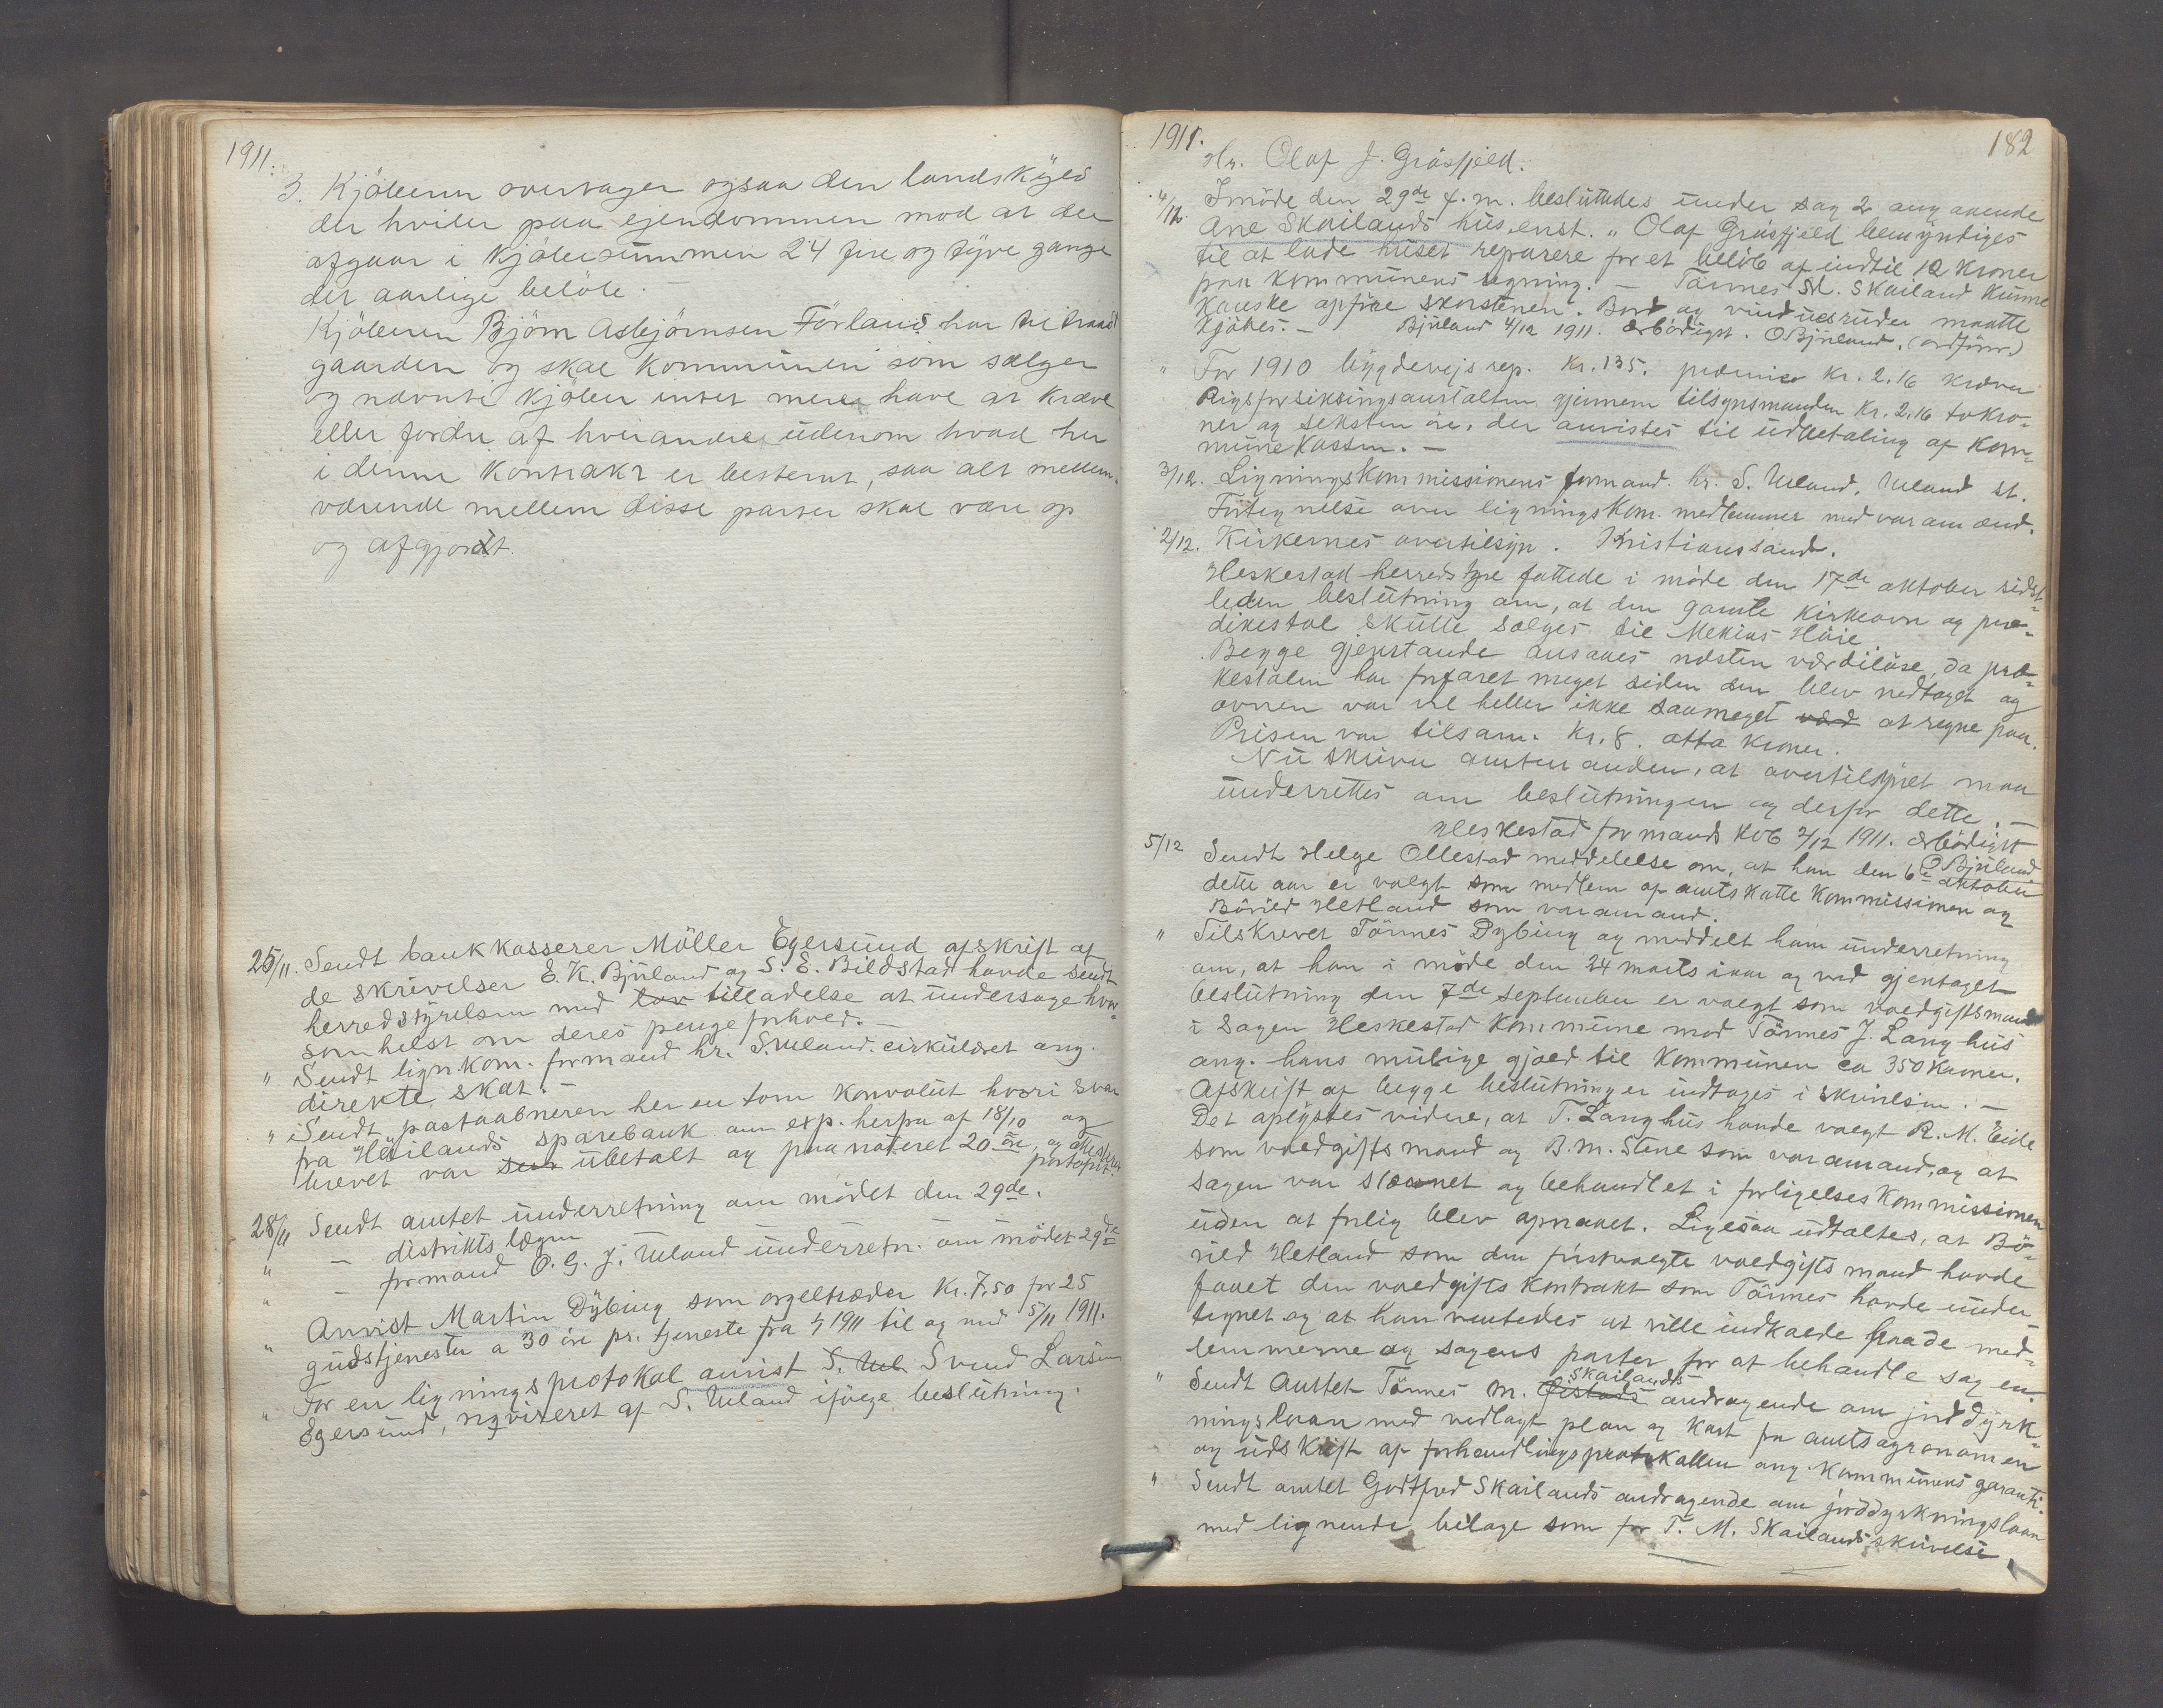 1911.
3. Kjöberen overtager ogsaa den landskyld
der hviler paa ejendommen mod at der
afgaar i kjöbesummen 24 fire og tyve gange
det aarlige belöb.
Kjöberen Björn Asbjörnsen Förland har tiltraadt
gaarden og skal kommunen som sælger
og nævnte kjöber intet mere have at kræve
eller fordre af hverandre udenom hvad her
i denne kontrakt er bestemt, saa alt mellem-
værende mellem disse parter skal være op
og afgjordt.
25/11. Sendt bankkasserer Möller Egersund afskrift af
de skrivelser E. K. Bjuland og S. E. Bildstad havde sendt
herredstyrelsen med lov tilladelse at undersøge hvor-
somhelst om deres pengeforhold. —
" Sendt lign. kom. formand hr. S. Ueland cirkulæret ang.
direkte skat. —
" Sendt postaabneren her en tom konvolut hvori svar
fra Höilands sparebank om exp. herfra af 18/10 og
brevet var ubetalt og paanoteret 20 øre, og ønskes
portofrit.
28/11 Sendt amtet underretning om mödet den 29de.
" — distriktslægen
" — formand O. G. J. Ueland underretn. om mödet 29de
" Anvist Martin Dybing som orgeltræder Kr. 7,50 for 25
gudstjenester a 30 öre pr. tjeneste fra 1/1 1911 til og med 5/11 1911.
" For en ligningsprotokol anvist S. Uel Svend Larsen
Egersund, reqvireret af S. Ueland ifölge beslutning.
1911.
182
Hr. Olaf J. Gräsfjeld.
4/12. I möde den 29de f. m. besluttedes under sag 2 angaaende
Ane Skailands hus enst. "Olaf Gräsfjeld bemyndiges
til at lade huset reparere for et belöb af indtil 12 kroner
paa kommunens regning. — Tönnes M. Skailand kunne
kanske opföre skorstenen. Bord og vinduesruder maatte
kjöbes. — Bjuland 4/12 1911. Ærbödigst. O Bjuland. (ordförer)
" For 1910 bygdevejsrep. kr. 135. præmie kr. 2.16 kræver
Rigsforsikringsanstalten gjennem tilsynsmanden kr. 2,16 to kro-
ner og seksten öre, der anvistes til udbetaling af kom-
munekassen. —
3/12. Ligningskommissionens formand hr. S. Ueland, Ueland st.
Fortegnelse over ligningskom. medlemmer med varamænd.
2/12. Kirkernes overtilsyn. Kristianssand.
Heskestad herredstyre fattede i möde den 17de oktober sidst-
leden beslutning om, at den gamle kirkeovn og præ-
dikestol skulle sælges til Mekias Höie.
Begge gjenstande ansaaes næsten værdilöse, da præ-
kestolen har forfaret meget siden den blev nedtaget og
ovnen var vel heller ikke saameget værd at regne paa.
Prisen var tilsam. kr. 8. otte kroner.
Nu skriver amtmanden, at overtilsynet maa
underrettes om beslutningen og derfor dette. —
Heskestad formandskob 2/12 1911. Ærbödigst
O Bjuland
5/12 Sendt Helge Ollestad meddelelse om, at han den 6te oktober
dette aar er valgt som medlem af amtskattekommissionen og
Böried Hetland som varamand.
" Tilskrevet Tönnes Dybing og meddelt ham underretning
om, at han i möde den 24 marts iaar og ved gjentaget
beslutning den 7de september er valgt som voldgiftsmand
i sagen Heskestad kommune mod Tönnes J. Langhus
ang. hans mulige gjæld til kommunen ca 350 kroner.
Afskrift af begge beslutninger indtages i skrivelsen. —
Det oplystes videre, at T. Langhus havde valgt R. M. Eide
som voldgiftsmand og B. M. Stene som varamand, og at
sagen var stævnet og behandlet i forligelseskommissionen
uden at forlig blev opnaaet. Ligesaa udtaltes, at Bö-
ried Hetland som den förstvalgte voldgiftsmand havde
faaet den voldgiftskontrakt som Tönnes havde under-
tegnet og at han ventedes at ville indkalde baade med-
lemmerne og sagens parter for at behandle sagen.
" Sendt Amtet Tönnes M. Skailands andragende om jorddyrk-
ningslaan med vedlagt plan og kart fra amtsagronomen
og udskrift af forhandlingsprotokollen ang. kommunens garanti
" Sendt amtet Godtfred Skailands andragende om jorddyrkningslaan
med lignende bilage som for T. M. Skailands skrivelse.